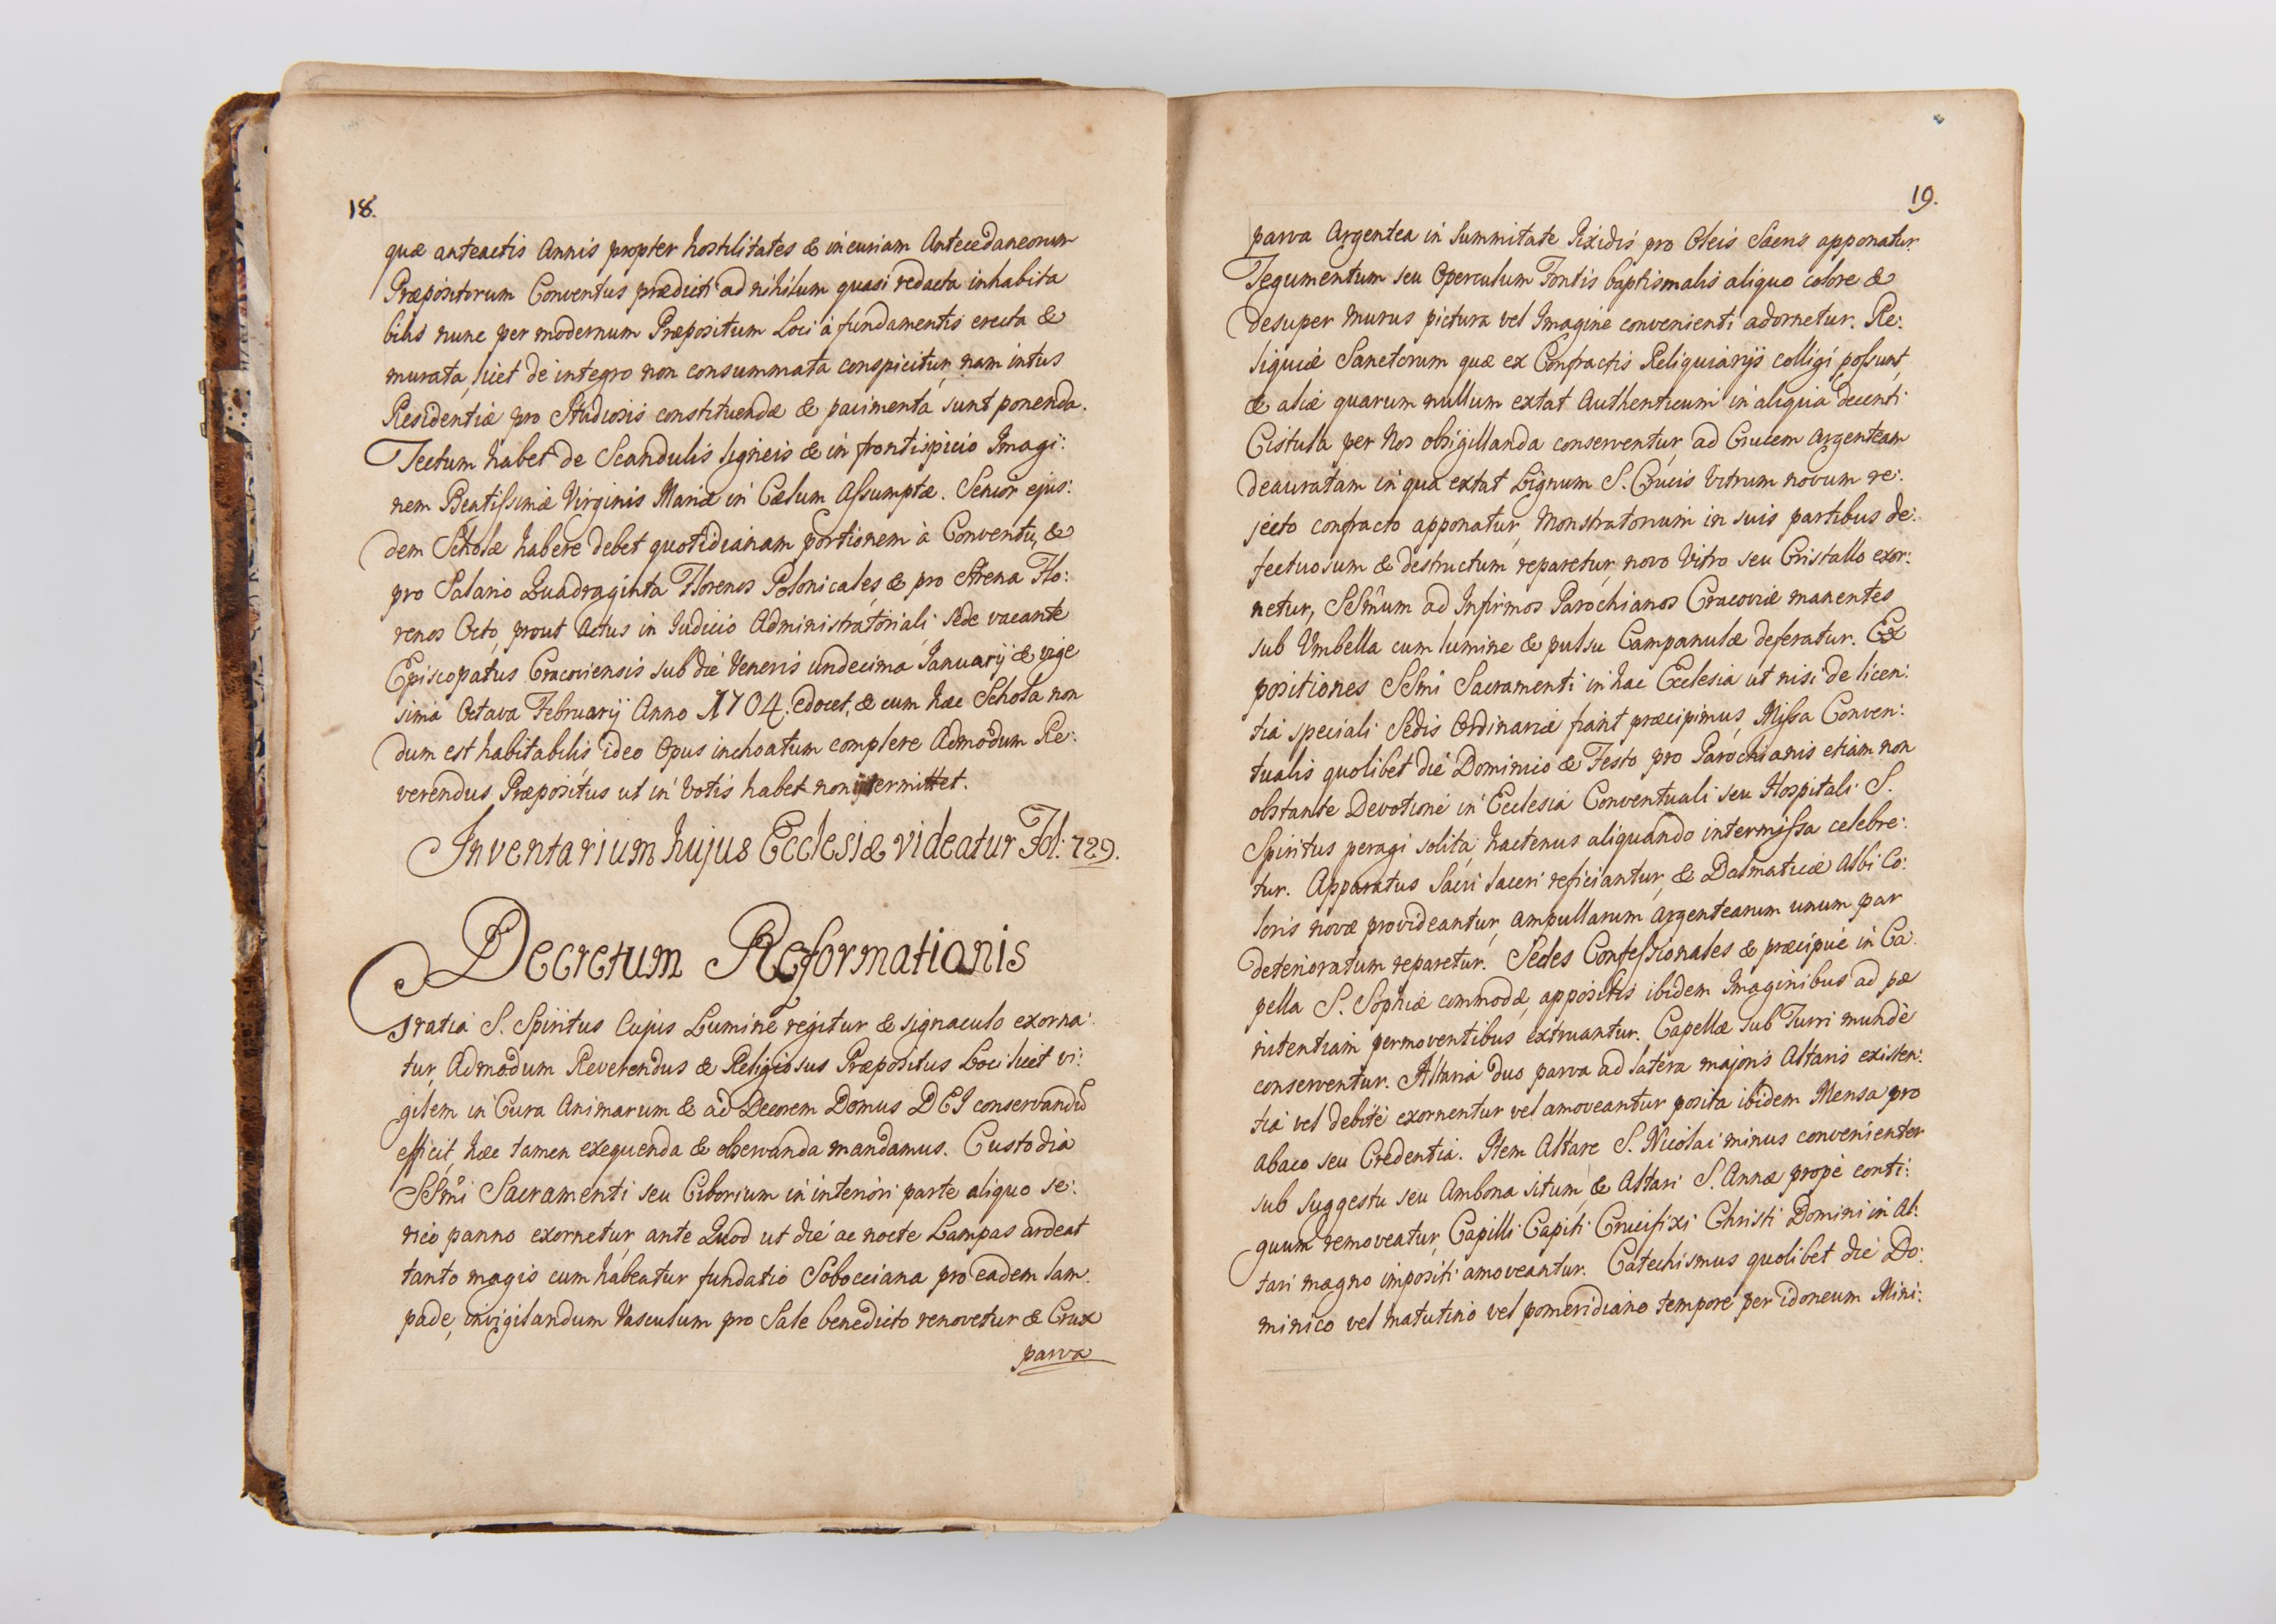 18.
quæ anteactis Annis propter hostilitates & incuriam Antecedaneorum
Præpositorum Conventus prædicti ad nihilum quasi redacta inhabita
bilis nunc per modernum Præpositum Loci à fundamentis erecta &
murata, licet de integro non consummata conspicitur, nam intus
Residentiæ pro Studiosis constituendæ & pavimenta sunt ponenda.
Tectum habet de Scandulis ligneis & in frontispicio Imagi:
nem Beatissimæ Virginis Mariæ in Cælum Assumptæ. Senior ejus:
dem Scholæ habere debet quotidianam portionem à Conventu, &
pro Salario Quadraginta Florenos Polonicales, & pro Strena Flo:
renos Octo, prout Actus in Iudicio Administratoriali sede vacante
Episcopatus Cracoviensis sub die Veneris undecima Ianuarij & vige
sima Octava Februarij Anno 1704. edocet, & cum hæc Schola non
dum est habitabilis ideo Opus inchoatum complere Admodum Re:
verendus Præpositus ut in Votis habet non intermittet.
Inventarium hujus Ecclesiæ videatur Fol: 729.
Decretum Reformationis
Gratia S. Spiritus Cujus Lumine regitur & signaculo exorna:
tur, Admodum Reverendus & Religiosus Præpositus Loci licet vi:
gilem in Cura Animarum & ad Decorem Domus DEI conservandũ
efficit, hæc tamen exequenda & observanda mandamus. Custodia
SSmi Sacramenti seu Ciborium in interiori parte aliquo se:
rico panno exornetur, ante Quod ut die ac nocte Lampas ardeat
tanto magis cum habeatur fundatio Sobocciana pro eadem lam:
pade, invigilandum Vasculum pro Sale benedicto renovetur & Crux
parva
19.
parva Argentea in Summitate Pixidis pro Oleis Sacris apponatur.
Tegumentum seu Operculum Fontis baptismalis aliquo colore &
desuper Murus pictura vel Imagine convenienti adornetur. Re:
liquiæ Sanctorum quæ ex Confractis Reliquiarijs colligi possunt
& aliæ quarum nullum extat Authenticum in aliqua decenti
Cistula per Nos obsigillanda conserventur, ad Crucem Argenteam
deauratam in qua extat Lignum S. Crucis Vitrum novum re:
jecto confracto apponatur, Monstratorium in suis partibus de:
fectuosum & destructum reparetur, novo Vitro seu Cristallo exor:
netur, SSmum ad Infirmos Parochianos Cracoviæ manentes
sub Vmbella cum lumine & pulsu Campanulæ deferatur. Ex
positiones SSmi Sacramenti in hac Ecclesia ut nisi de licen:
tia speciali Sedis Ordinariæ fiant præcipimus, Missa Conven:
tualis quolibet die Dominico & Festo pro Parochianis etiam non
obstante Devotione in Ecclesia Conventuali seu Hospitali S.
Spiritus peragi solita, hactenus aliquando intermissa celebre:
tur. Apparatus Sacri laceri reficiantur, & Dalmaticæ Albi Co:
loris novæ provideantur, Ampullarum Argentearum unum par
deterioratum reparetur. Sedes Confessionales & præcipue in Ca:
pella S. Sophiæ commodæ, appositis ibidem Imaginibus ad pæ
nitentiam permoventibus extruantur. Capellæ sub Turri munde
conserventur. Altaria duo parva ad latera majoris Altaris existen:
tia vel debite exornentur vel amoveantur posita ibidem Mensa pro
Abaco seu Credentia. Item Altare S. Nicolai minus convenienter
sub Suggestu seu Ambona situm, & Altari S. Annæ prope conti:
guum removeatur, Capilli Capiti Crucifixi Christi Domini in Al:
tari magno impositi amoveantur. Catechismus quolibet die Do:
minico vel matutino vel pomeridiano tempore per idoneum Mini: